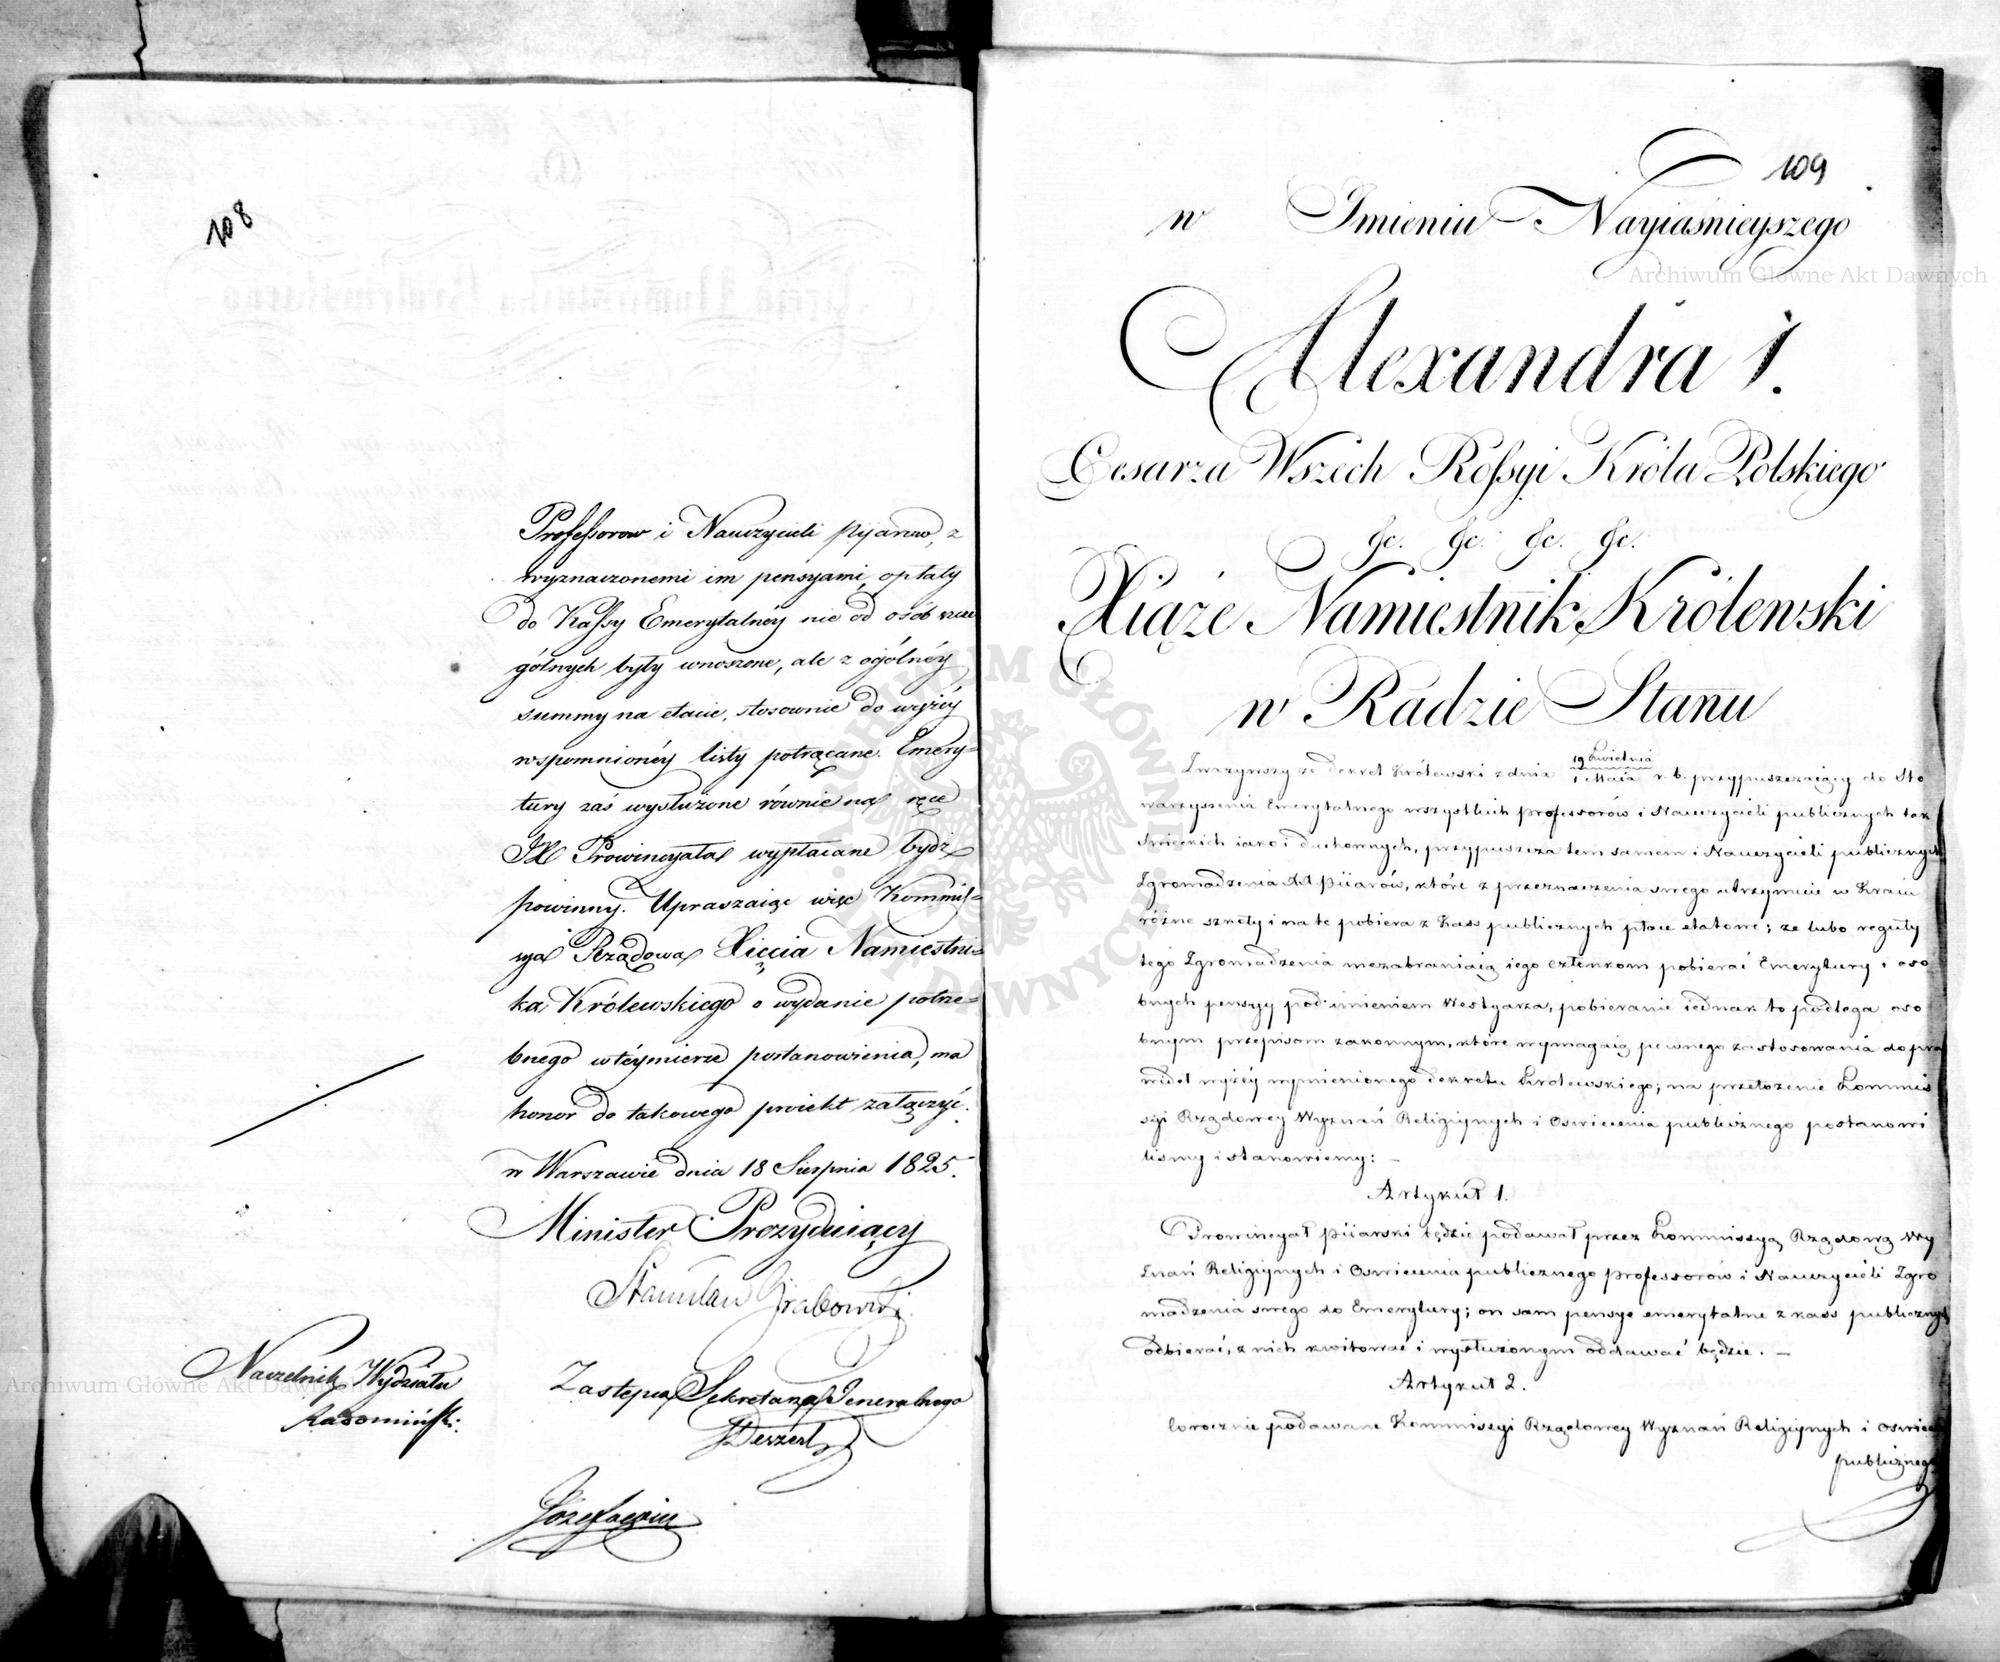 108
Professorow i Nauczycieli Pijarow, z
wyznaczonemi im pensyami, opłaty
do Kassy Emerytalnéy nie od osób szcze
gólnych były wnoszone, ale z ogólnéy
summy na etacie, stosownie do wyżéy
wspomnionéy listy potrącane. Emery=
tury zaś wysłużone równie na ręce
JX Prowincyała wypłacane bydź
powinny. Upraszaiąc więc Kommis=
sya Rządowa Xięcia Namiestni=
ka Królewskiego o wydanie potrze=
bnego w téymierze postanowienia, ma
honor do takowego proiekt załączyć.
w Warszawie dnia 18 Sierpnia 1825.
Minister Prezyduiący
Stanisław Grabowski
Naczelnik Wydziału
Radomiński
Zastępca Sekretarza Jeneralnego
Deszert
109
w Imieniu Nayiaśnieyszego
Alexandra I.
Cesarza Wszech Rossyi Króla Polskiego
&c. &c. &c. &c.
Xiąże Namiestnik Królewski
w Radzie Stanu
Zważywszy że dekret Królewski z dnia 19 Kwietnia / 1 Maia r. b. przypuszczaiący do Sto
warzyszenia Emerytalnego wszystkich Professorów i Nauczycieli publicznych tak
Świeckich iako i duchownych, przypuszcza tem samem i Nauczycieli publicznych
Zgromadzenia XX Piiarów, które z przeznaczenia swego utrzymuie w Kraiu
różne szkoły i na te pobiera z Kass publicznych płace etatowe; że lubo reguły
tego Zgromadzenia niezabraniaią iego członkom pobierać Emerytury i oso
bnych pensyy pod imieniem Westyarza, pobieranie iednak to podlega oso
bnym przepisom zakonnym, które wymagaią pewnego zastosowania do pra
wideł wyżéy wymienionego dekretu Królewskiego; na przełożenie Kommis
syi Rządowey Wyznań Religiynych i Oświecenia publicznego postanowi
liśmy i stanowiemy: —
Artykuł 1.
Prowincyał Piiarski będzie podawał przez Kommissyą Rządową Wy
znań Religiynych i Oświecenia publicznego Professorów i Nauczycieli Zgro
madzenia swego do Emerytury; on sam pensye emerytalne z kass publicznych
odbierać, z nich kwitować i wysłużonym oddawać będzie. —
Artykuł 2.
Corocznie podawane Kommissyi Rządowey Wyznań Religiynych i Oświec
publicznego
Archiwum Główne Akt Dawnych
Archiwum Główne Akt Dawnych
ARCHIWUM GŁÓWNE AKT DAWNYCH